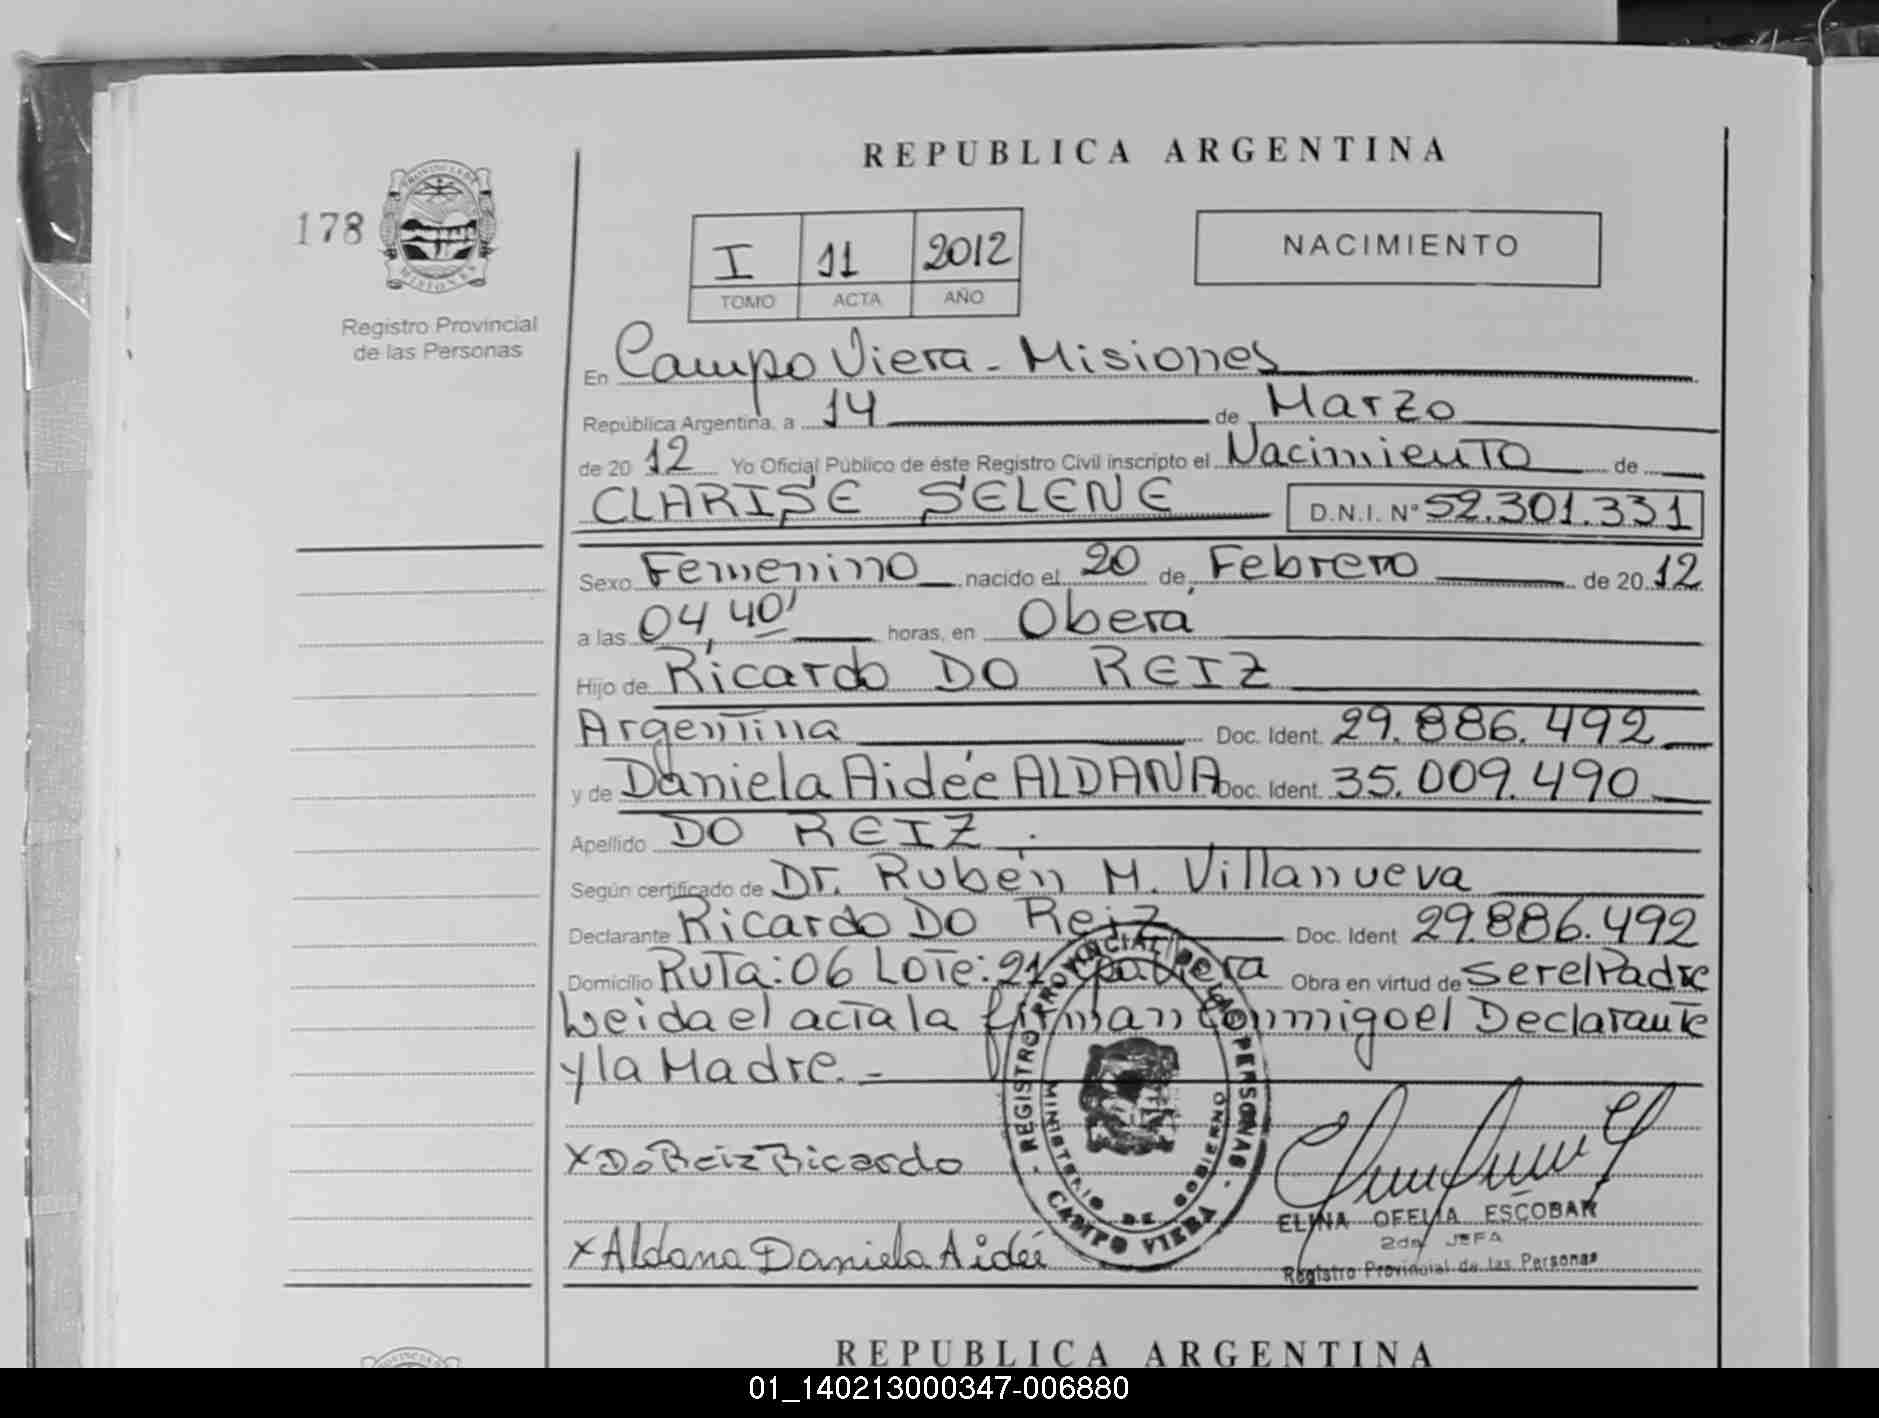 REPUBLICA ARGENTINA
178
PROVINCIA DE MISIONES
I 11 2012
TOMO ACTA AÑO
NACIMIENTO
Registro Provincial
de las Personas
En Campo Viera - Misiones
República Argentina, a 14 de Marzo
de 20 12 Yo Oficial Público de éste Registro Civil inscripto el Nacimiento de
CLARISE SELENE D.N.I. N° 52.301.331
Sexo Femenino nacido el 20 de Febrero de 20 12
a las 04,40' horas, en Oberá
Hijo de Ricardo DO REIZ
Argentina Doc. Ident. 29.886.492
y de Daniela Aidée ALDANA Doc. Ident. 35.009.490
Apellido DO REIZ.
Según certificado de Dr. Rubén M. Villanueva
Declarante Ricardo DO ReiZ Doc. Ident 29.886.492
Domicilio Ruta: 06 Lote: 21 Obra en virtud de ser el Padre
Leida el acta la firman conmigo el Declarante
y la Madre. -
REGISTRO PROVINCIAL DE LAS PERSONAS
MINISTERIO DE GOBIERNO
CAMPO VIERA
X Do Reiz Ricardo
ELINA OFELIA ESCOBAR
2da JEFA
Registro Provincial de las Personas
X Aldana Daniela Aideé
REPUBLICA ARGENTINA
01_140213000347-006880